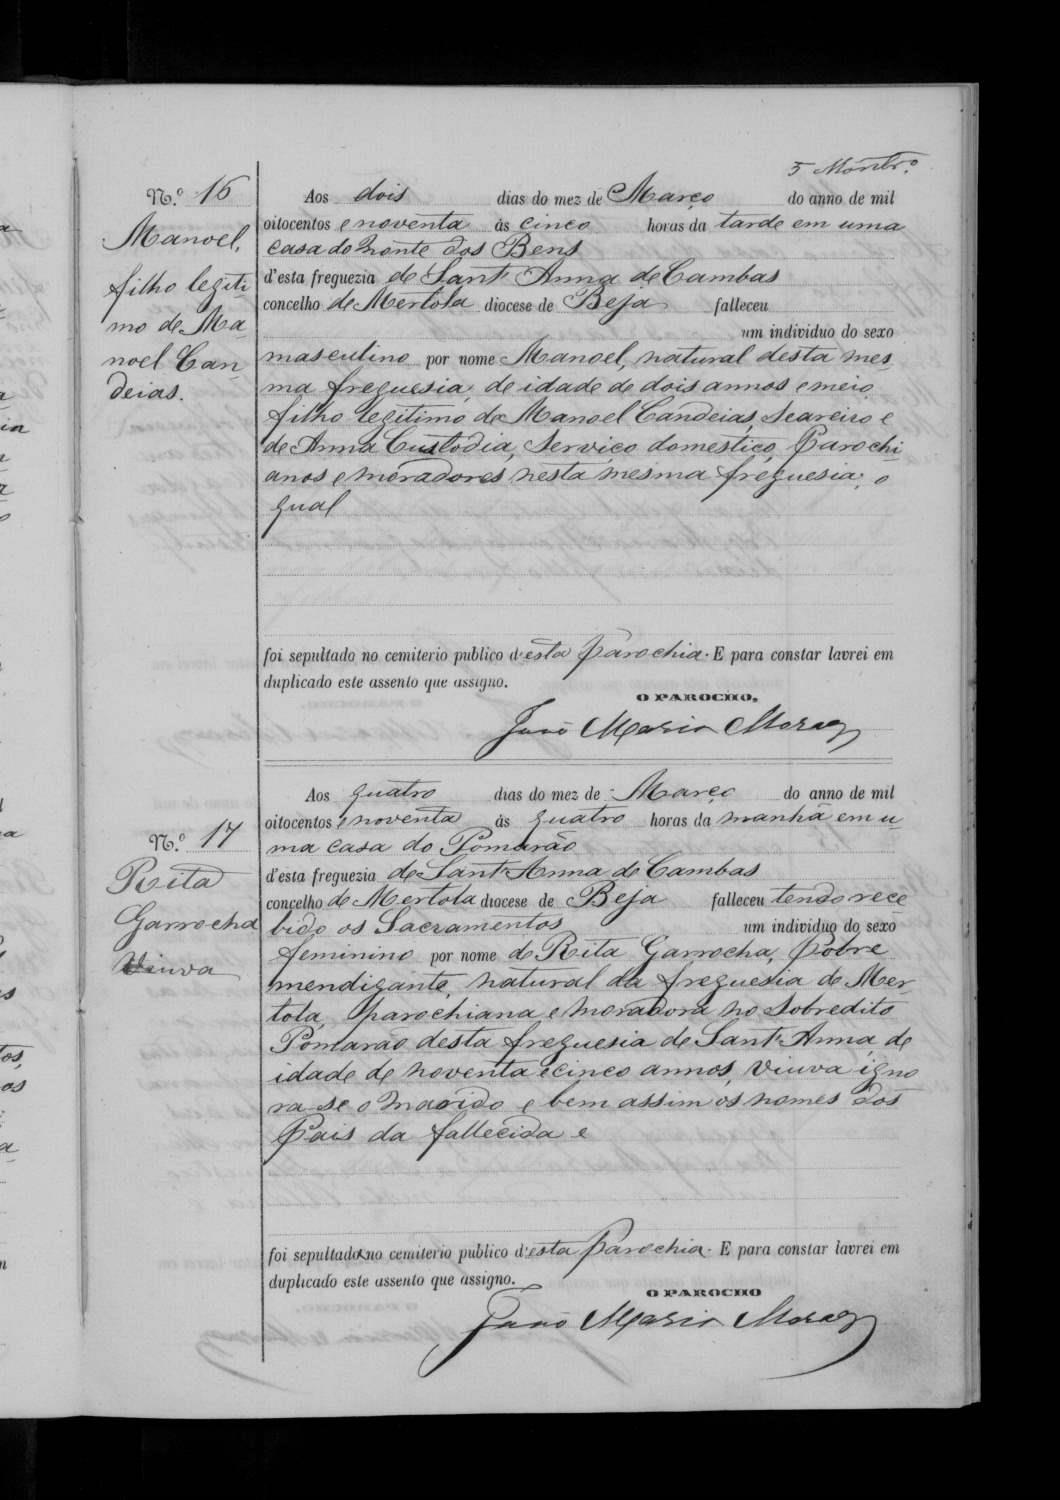 5
N.º 16
Manoel,
filho legiti
mo de Ma
noel Can
deias.
Aos dois dias do mez de Março do anno de mil
oitocentos e noventa ás cinco horas da tarde em uma
casa do Monte dos Bens
d'esta freguezia de Sant'Anna de Cambas
concelho de Mertola diocese de Beja falleceu
um individuo do sexo
masculino por nome Manoel, natural desta mes
ma freguesia, de idade de dois annos e meio,
filho legitimo de Manoel Candeias, Seareiro e
de Anna Custodia, Serviço domestico, Parochi
anos e moradores nesta mesma freguesia, o
qual
foi sepultado no cemiterio publico d'esta Parochia. E para constar lavrei em
duplicado este assento que assigno.
O PAROCHO,
João Maria
N.º 17
Rita
Garrocha
Viuva
Aos quatro dias do mez de Março do anno de mil
oitocentos e noventa ás quatro horas da manhã em u
ma casa do Pomarão
d'esta freguezia de Sant'Anna de Cambas
concelho de Mertola diocese de Beja falleceu tendo rece
bido os Sacramentos um individuo do sexo
feminino por nome de Rita Garrocha, Pobre
mendigante, natural da freguesia de Mer
tola, parochiana e moradora no sobredito
Pomarão desta freguesia de Sant'Anna, de
idade de noventa e cinco annos, viuva igno
ra-se o marido e bem assim os nomes dos
Pais da fallecida e
foi sepultada no cemiterio publico d'esta Parochia. E para constar lavrei em
duplicado este assento que assigno.
O PAROCHO
João Maria